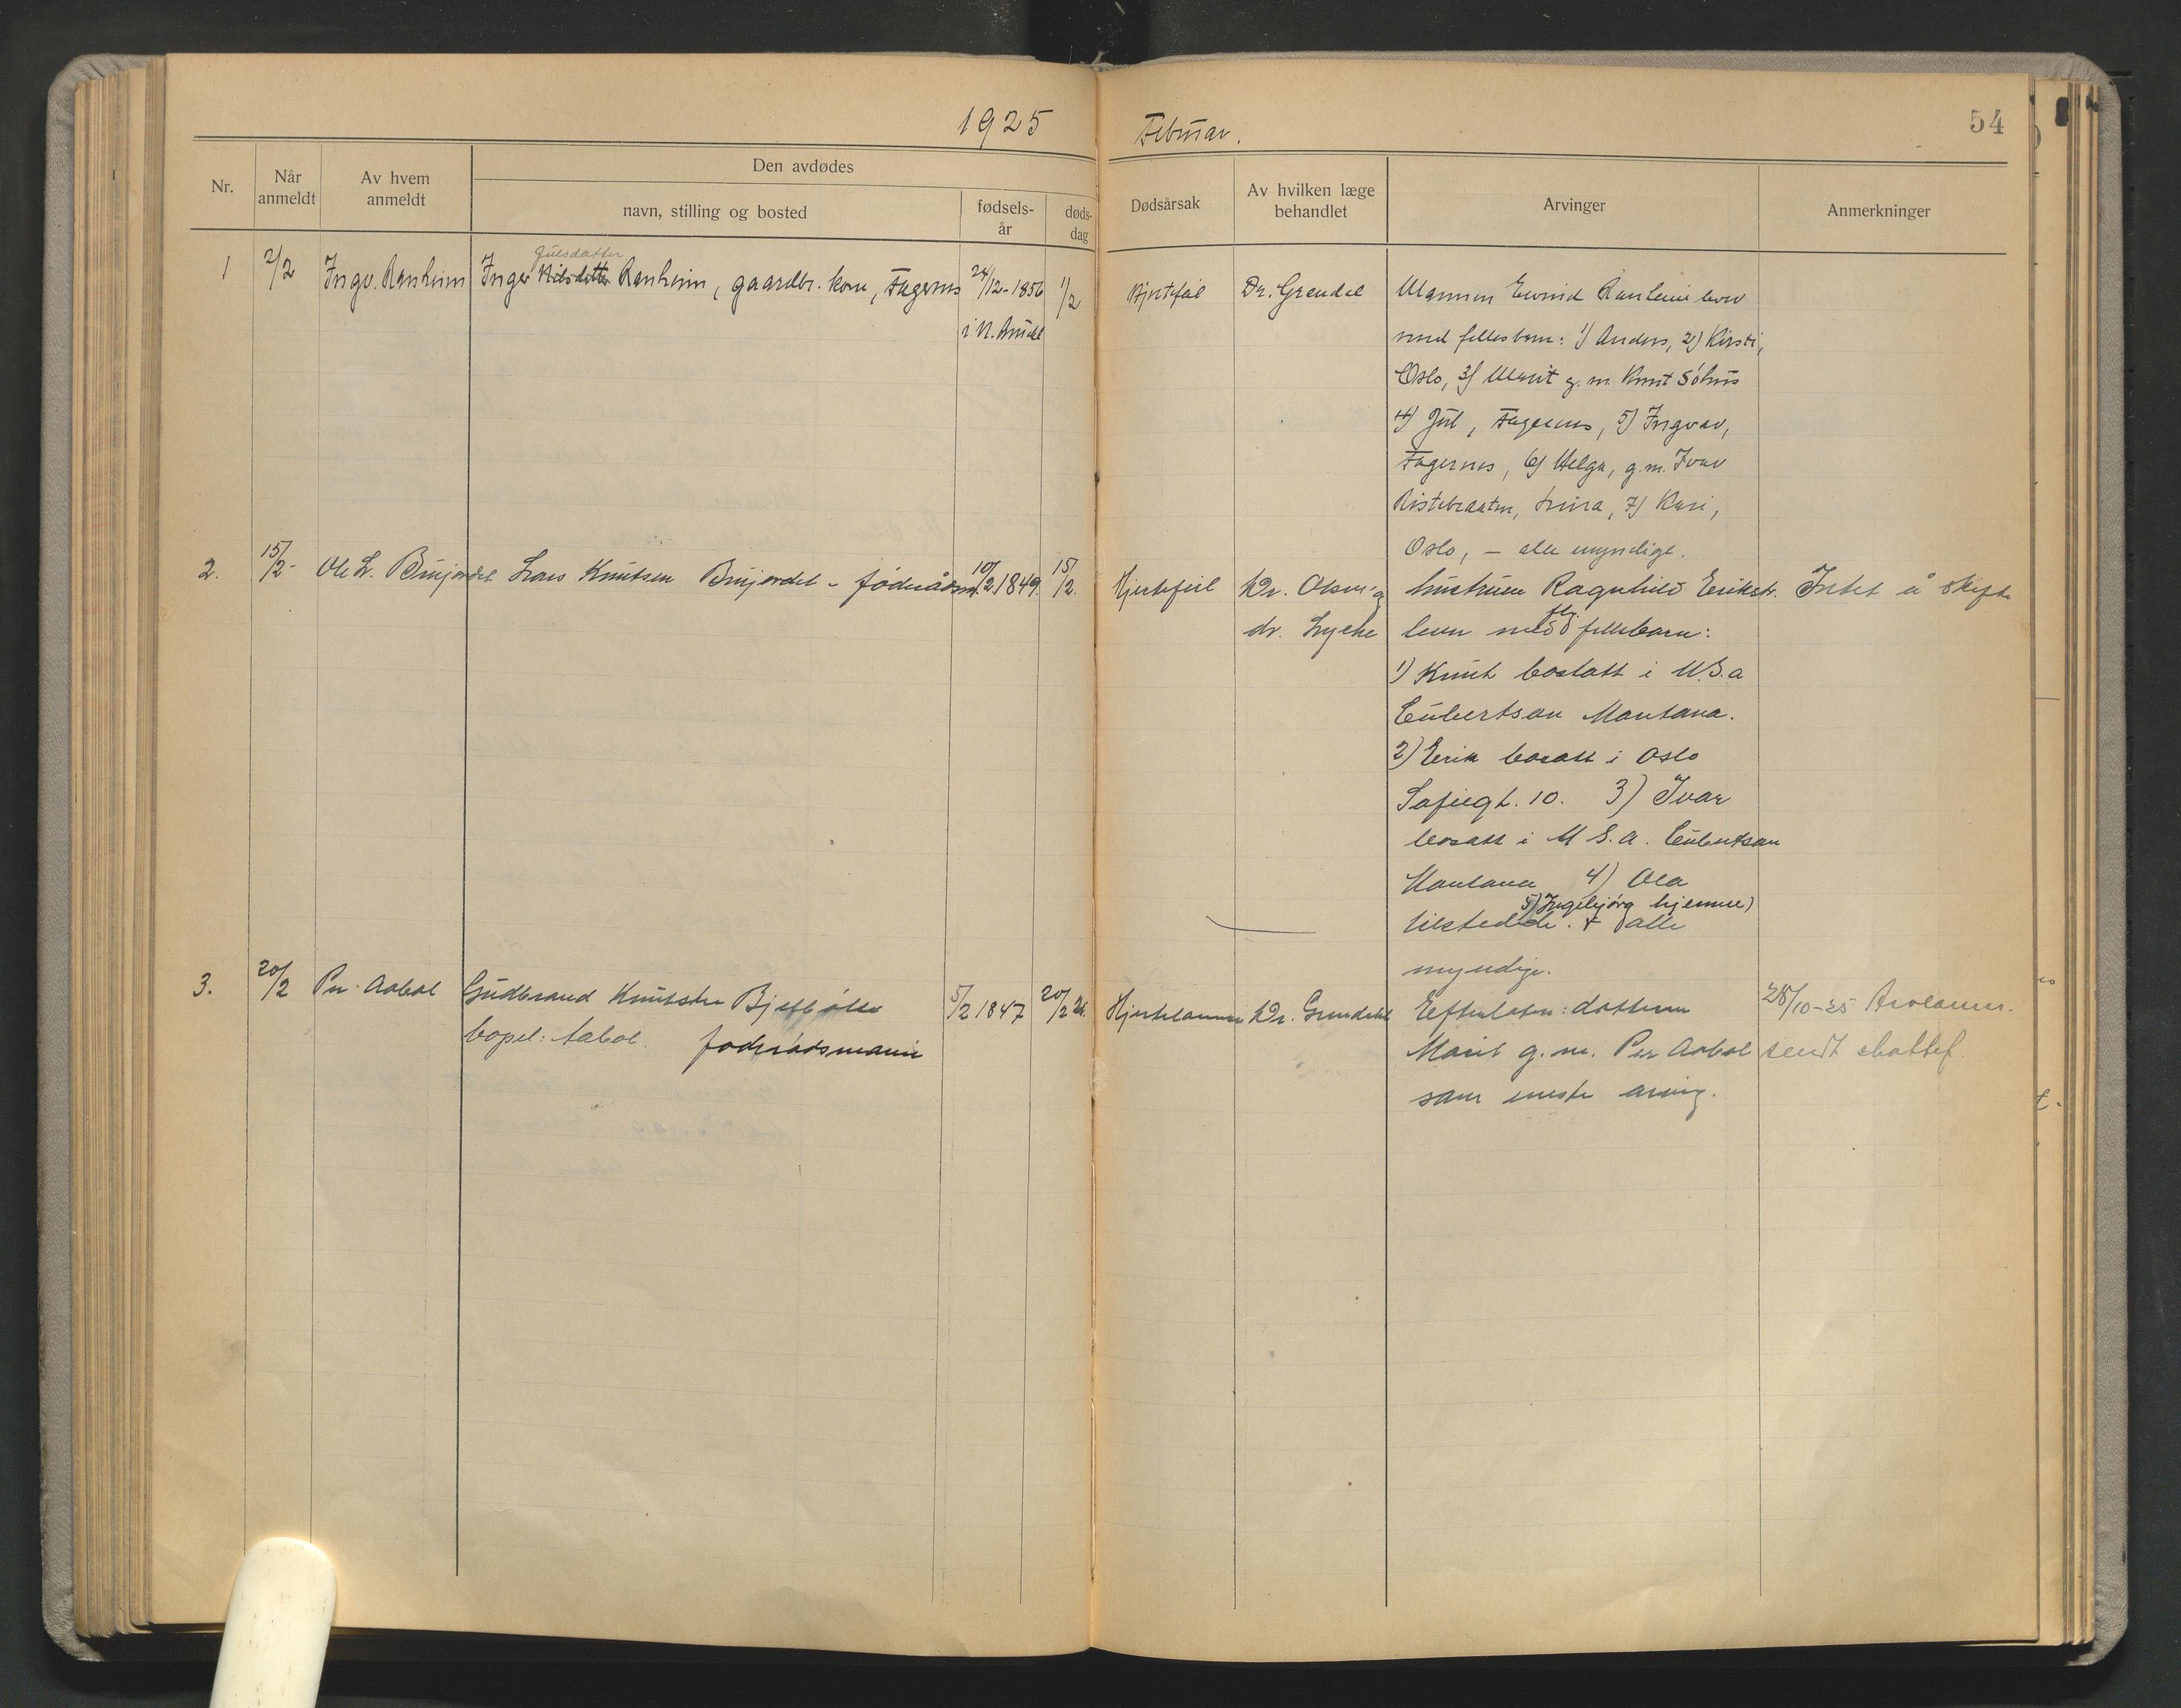 1925 Februar. 54
Nr. Når anmeldt Av hvem anmeldt Den avdødes navn, stilling og bosted fødsels-år døds-dag Dødsårsak Av hvilken læge behandlet Arvinger Anmerkninger
Julsdatter
1 2/2 Ingv. Ranheim Inger Nilsdatter Ranheim, gaardbr. kone, Fagernes 24/12-1856 1/2 Hjertefeil Dr. Grøndal Mannen Eivind Ranheim lever
i N. Aurdal
med fellesbarn: 1) Anders, 2) Kirsti,
Oslo, 3) Marit g. m. Knut
4) Jul, Fagernes, 5) Ingvar,
Fagernes, 6) Helga, g. m. Ivar
Ristebraaten, 7) Kari,
Oslo, – alle myndige.
2. 15/2- Ole L. Brujordet Lars Knutsen Brujordet - føderådsm. 10/2 1849. 15/2. Hjertefeil Dr. Olsen og hustruen Ragnhild Eriksdr. Intet å skifte
dr. Lyche lever med flg. fellesbarn:
1) Knut bosatt i U.S.a
Culbertson Montana.
2) Erik bosatt i Oslo
Sofiegt. 10. 3) Ivar
bosatt i U S.A. Culbertson
Montana 4) Ola
5) Ingebjørg hjemme)
tilstede. + alle
myndige.
3. 20/2 Per Aabol Gudbrand Knutsen 5/2 1847 20/2 Hjertelammelse Dr. Grøndahl Efterlater: datteren 28/10-25
bopel: Aabol. føderådsmann Marit g. m. Per Aabol sendt skattef.
som eneste arving.